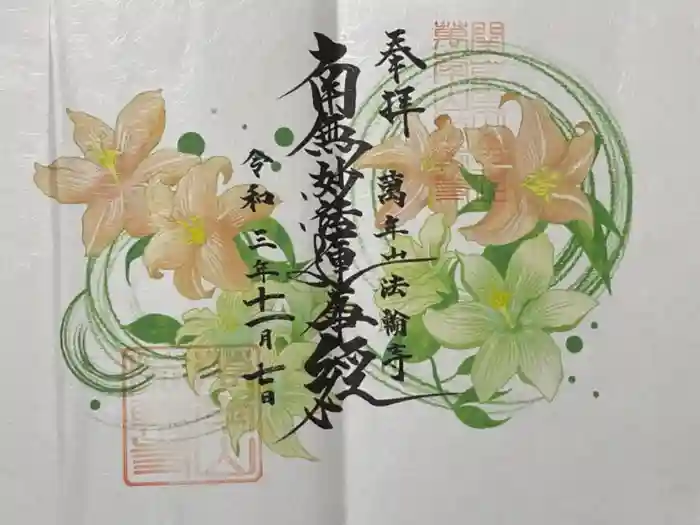 奉拝
萬年山法輪寺
南無妙法蓮華経
令和三年十一月七日